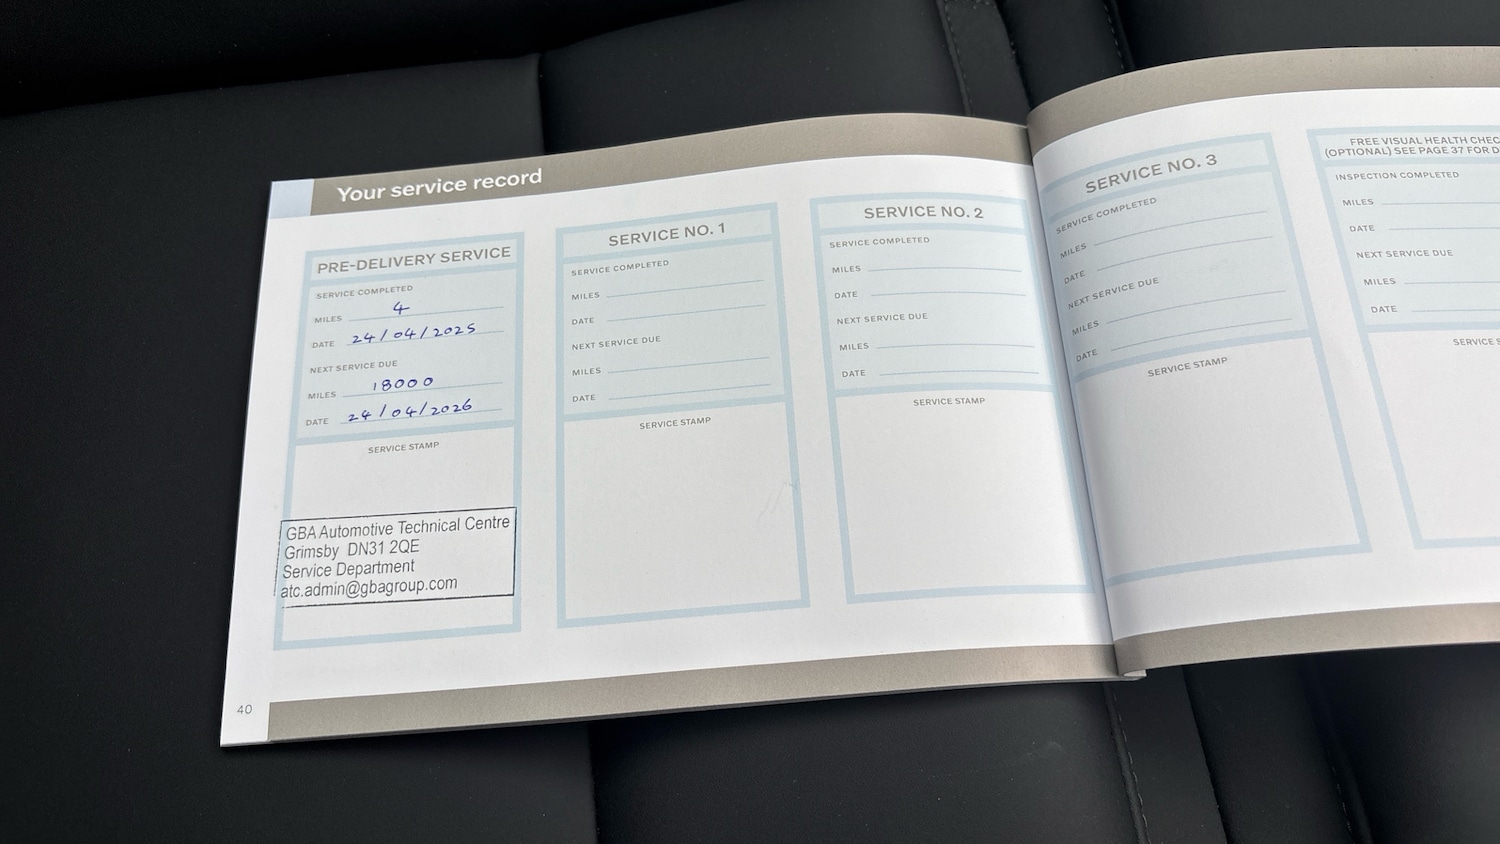 Your service record
PRE-DELIVERY SERVICE
SERVICE COMPLETED
MILES 4
DATE 24/04/2025
NEXT SERVICE DUE
MILES 18000
DATE 24/04/2026
SERVICE STAMP
GBA Automotive Technical Centre
Grimsby DN31 2QE
Service Department
atc.admin@gbagroup.com
SERVICE NO. 1
SERVICE COMPLETED
MILES
DATE
NEXT SERVICE DUE
MILES
DATE
SERVICE STAMP
SERVICE NO. 2
SERVICE COMPLETED
MILES
DATE
NEXT SERVICE DUE
MILES
DATE
SERVICE STAMP
40
SERVICE NO. 3
SERVICE COMPLETED
MILES
DATE
NEXT SERVICE DUE
MILES
DATE
SERVICE STAMP
FREE VISUAL HEALTH
(OPTIONAL) SEE PAGE 37 FOR
INSPECTION COMPLETED
MILES
DATE
NEXT SERVICE DUE
MILES
DATE
SERVICE